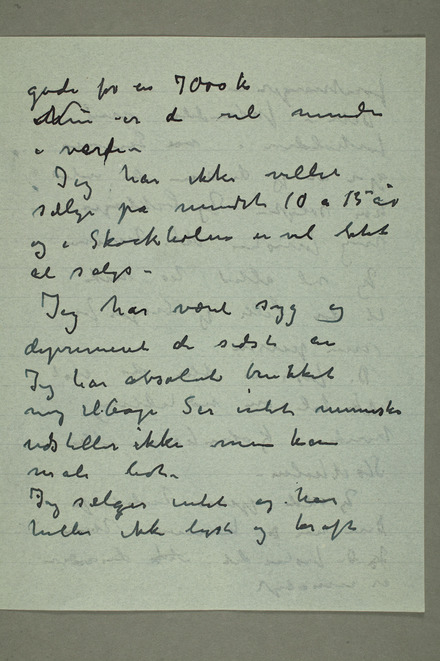 gode for en 7000 kr
Nu er de vel mindre
i værdi
Jeg har ikke villet
sælge på mindst 10 a 15 år
og i Stockholm er vel lidt
at sælge –
Jeg har været syg og
deprimeret de sidste år
Jeg har absolut trukket
mig tilbage Ser intet menneske
udstiller ikke men kan
male lidt.
Jeg sælger intet og har
heller ikke lyst og kraft